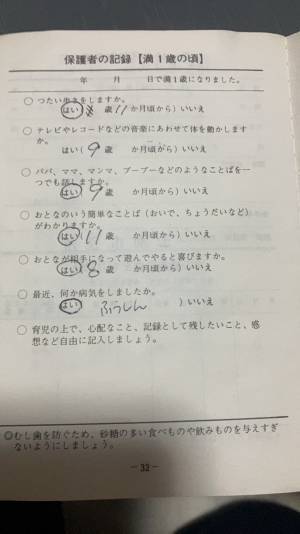 保護者の記録【満1歳の頃】
年　月　日で満1歳になりました。
○ つたい歩きをしますか。
はい（ 歳 11 か月頃から）いいえ
○ テレビやレコードなどの音楽にあわせて体を動かします
か。
はい（ 9 歳　か月頃から）いいえ
○ パパ、ママ、マンマ、ブーブーなどのようなことばを一
つでも話しますか。
はい（ 9 歳　か月頃から）いいえ
○ おとなのいう簡単なことば（おいで、ちょうだいなど）
がわかりますか。
はい（ 11 歳　か月頃から）いいえ
○ おとなが相手になって遊んでやると喜びますか。
はい（ 8 歳　か月頃から）いいえ
○ 最近、何か病気をしましたか。
はい（ ふうしん ）いいえ
○ 育児の上で、心配なこと、記録として残したいこと、感
想など自由に記入しましょう。
◎むし歯を防ぐため、砂糖の多い食べものや飲みものを与えすぎ
ないようにしましょう。
－32－